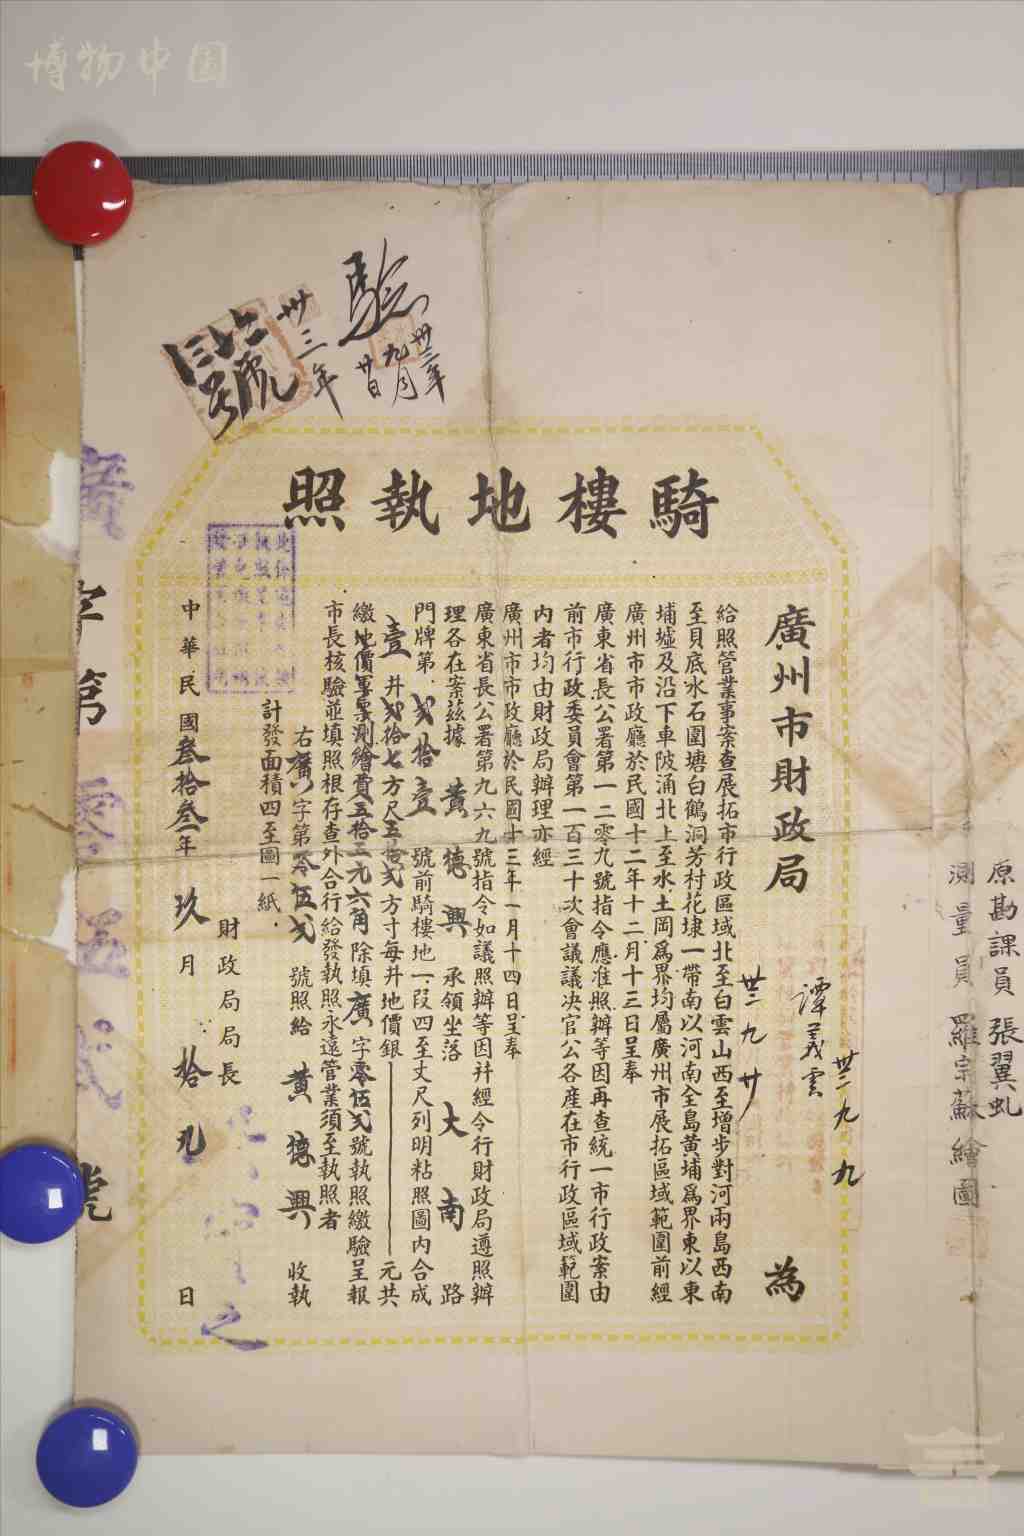 博物中国
驗
卅三年
九月
廿日
卅三年
號
騎樓地執照
廣州市財政局
為
譚義雲
卅三 九 九
卅三 九 廿
給照管業事案查展拓市行政區域北至白雲山西至增步對河兩島西南
至貝底水石圍塘白鶴洞芳村花埭一帶南以河南全島黃埔爲界東以東
埔墟及沿下車陂涌北上至水土岡爲界均屬廣州市展拓區域範圍前經
廣州市市政廳於民國十二年十二月十三日呈奉
廣東省長公署第一二零九號指令應准照辦等因再查統一市行政案由
前市行政委員會第一百三十次會議議决官公各產在市行政區域範圍
內者均由財政局辦理亦經
廣州市市政廳於民國十三年一月十四日呈奉
廣東省長公署第九六九號指令如議照辦等因幷經令行財政局遵照辦
理各在案茲據 黃德興 承領坐落 大南 路
門牌第 弍拾壹 號前騎樓地一段四至丈尺列明粘照圖內合成
壹 井 弍拾七 方尺 五拾弍 方寸每井地價銀 元共
繳地價軍票測繪費五拾三元六角除填 廣 字 零伍弍 號執照繳驗呈報
市長核驗並填照根存查外合行給發執照永遠管業須至執照者
右 廣 字第 零伍弍 號照給 黃德興 收執
計發面積四至圖一紙
財政局局長
中華民國叁拾叁年 玖 月 拾九 日
廣字第零伍弍號
原勘課員 張翼虬
測量員 羅宗蘇繪圖